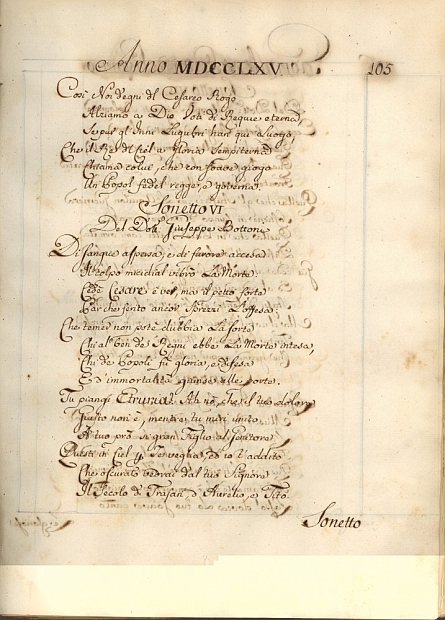 Anno MDCCLXV 105
Così Noi degni del Cesareo Rogo
Alziamo a Dio Voti di Requie eterna,
Se pur gl'Inni Lugubri han qui luogo,
Che il Re del Ciel a gloria sempiterna
Chiama colui, che con soave giogo
Un Popol fedel regge, e governa.
Sonetto VI
Del Dott. Giuseppe Bottoni
Di sangue aspersa, e di furore accesa
Il colpo micidial vibrò La Morte.
Cesare è ver, ma il petto forte
Par che ferito ancor sprezzi L'offesa.
Che temer non potè dubbia La sorte
Chi al ben de' Regni ebbe La Morte intesa,
Chi de' Popoli fù gloria, e difesa
E d'immortalità giunse alle porte.
Tu piangi Etruria? Ah nò, che il tuo dolore
Giusto non è, mentre tu miri unito
A tuo prò si gran Figlio al Genitore
Questi in Ciel
Che oscurato vedrai dal tuo Signore
Il Secolo di Trajan, d'Aurelio, e Tito
Sonetto